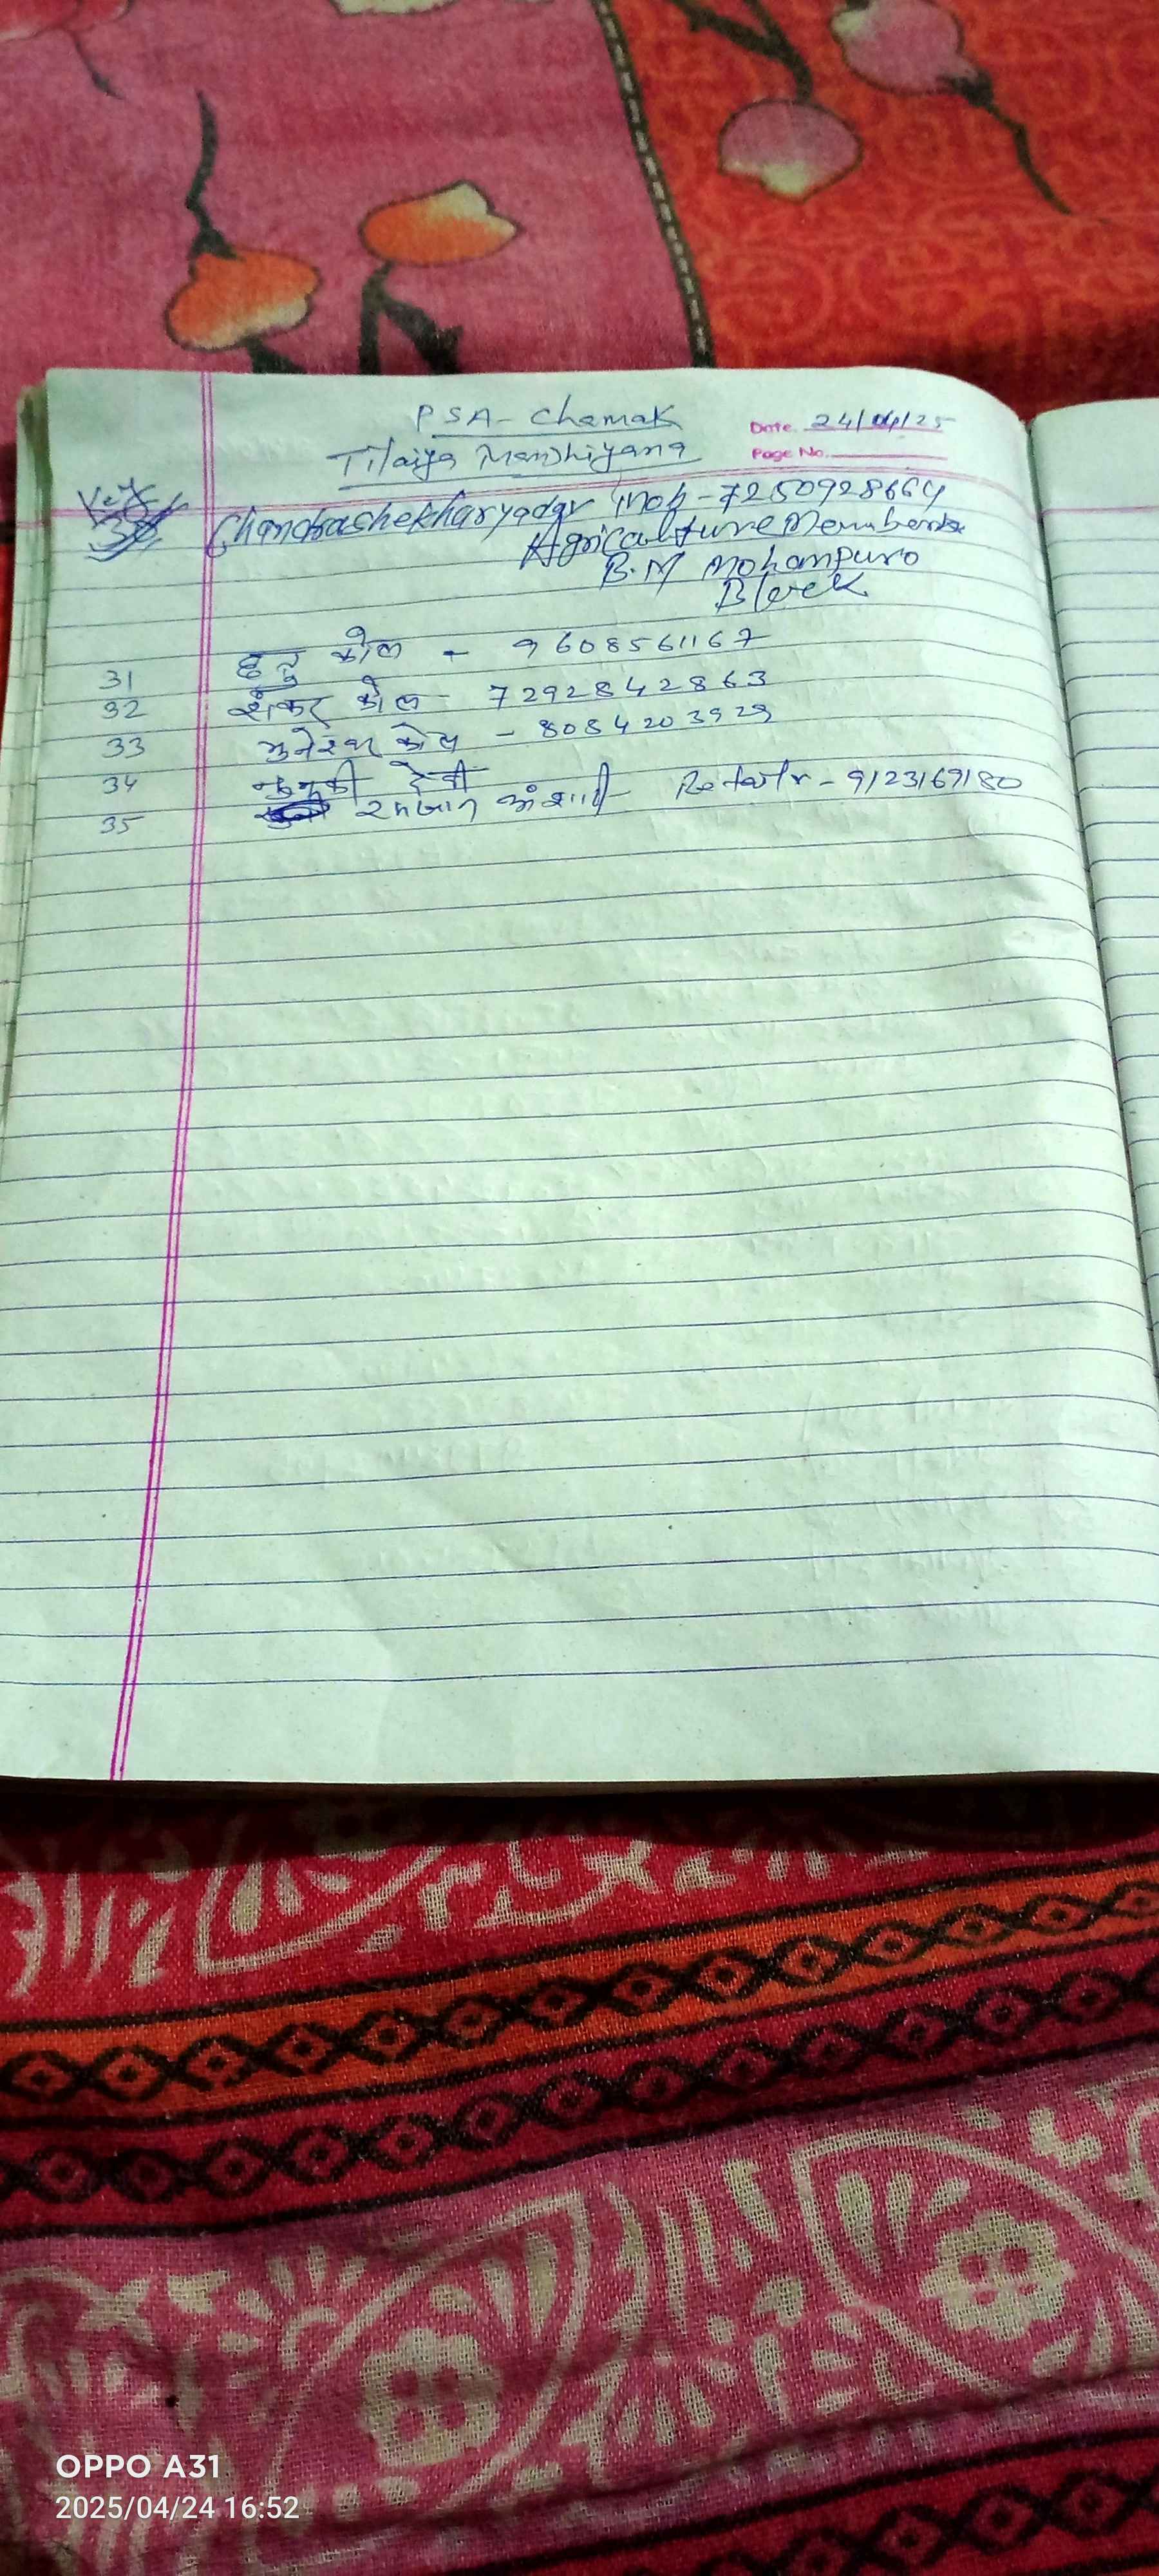 PSA - Chamak
Date. 24/04/25
Tilaiya Mandhiyana
Page No.
Chandrashekharyadav Mob - 7250928664
Agriculture Members
B.M Mohanpuro
Block
31 छतु कोल - 9608561167
32 शंकर कोल - 7292842863
33 मुनेश्वर कोल - 8084203929
34 देवी
35 रमजान अंशारी Retailr - 9123169180
OPPO A31
2025/04/24 16:52